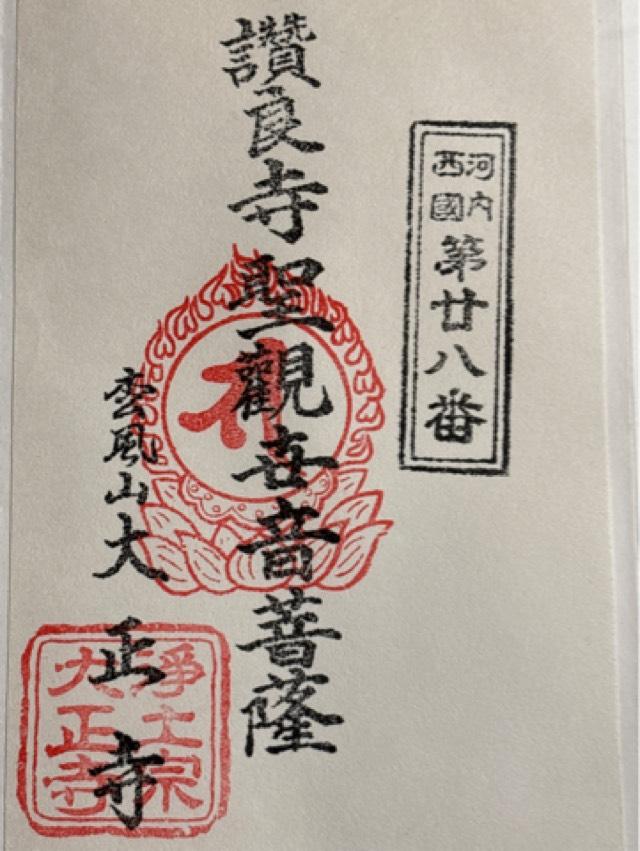 河内
西國
第廿八番
讃良寺聖觀世音菩薩
雲風山大正寺
淨土宗
大正寺